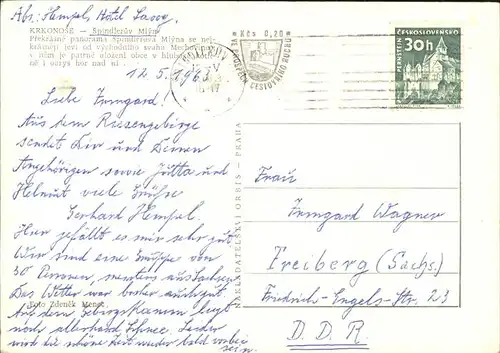 Abs: Hempel, Hotel Savoy,
KRKONOŠE — Špindlerův Mlýn
Překrásné panorama Špindlerova Mlýna se nej-
krásněji jeví od východního svahu
je patrné uložení obce v
i úzcký hor nad ní
12.5.1963
Kčs 0,20
CESTOVNÍHO RUCHU
ČESKOSLOVENSKO
30h
PERNŠTEJN
Liebe Irmgard!
Aus dem Riesengebirge
sendet Dir und Deinen
Angehörigen sowie Jutta und
Helmut viele Grüße
Gerhard Hempel.
Hier gefällt es mir sehr gut.
Wir sind eine Gruppe von
30 Personen, meistens aus Sachsen
Das Wetter war bisher auch gut.
Foto Zdeněk Menec
Auf dem Gebirgskamm liegt
noch allerhand Schnee. Leider
wird die schöne Zeit wieder bald vorbei
sein.
NAKLADATELSTVÍ ORBIS - PRAHA
Frau
Irmgard Wagner
Freiberg (Sachs.)
Friedrich-Engels-Str. 23
D. D. R.